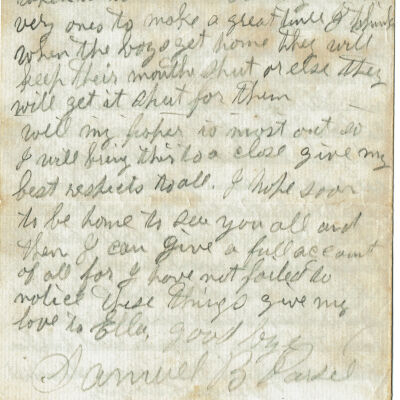 very ones to make a great time I think
when the boys get home they will
keep their mouths shut or else they
will get it shut for them
well my paper is most out so
I will bring this to a close give my
best respects to all. I hope soon
to be home to see you all and
then I can give a full account
of all for I have not failed to
notice these things give my
love to Ella, good bye
Samuel B